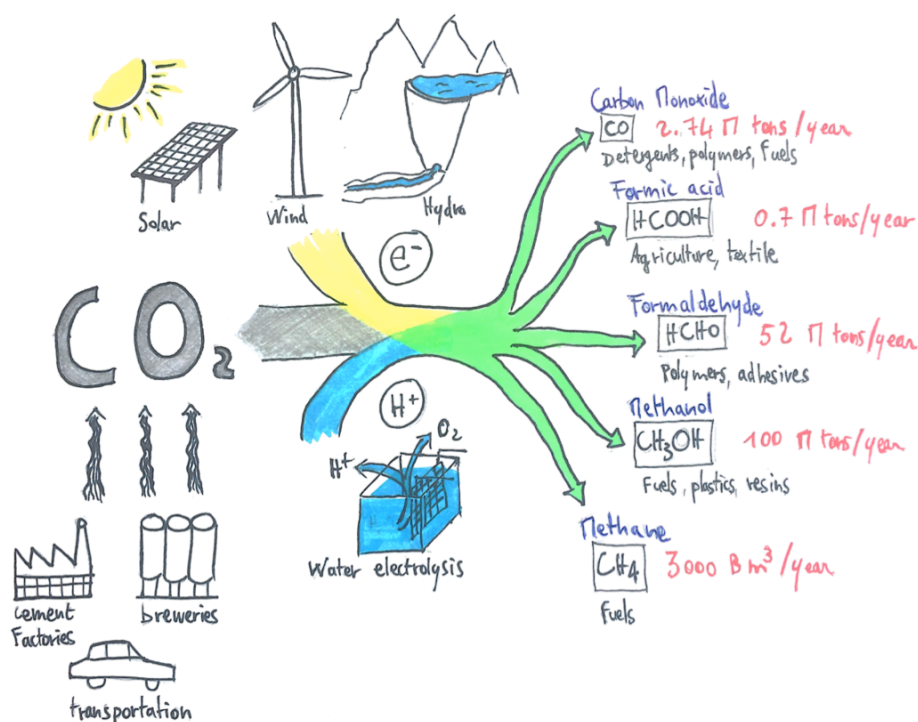 Solar
Wind
Hydro
e-
CO2
H+
O2
H+
Water electrolysis
cement
Factories
breweries
transportation
Carbon Monoxide
CO 2.74 M tons/year
Detergents, polymers, Fuels
Formic acid
HCOOH 0.7 M tons/year
Agriculture, textile
Formaldehyde
HCHO 52 M tons/year
Polymers, adhesives
Methanol
CH3OH 100 M tons/year
Fuels, plastics, resins
Methane
CH4 3000 B m³/year
Fuels